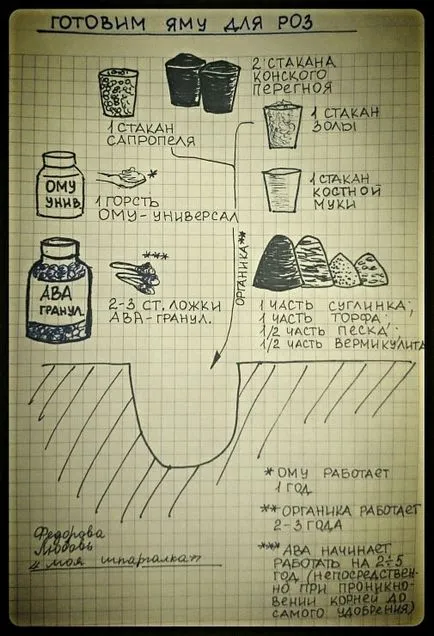 ГОТОВИМ ЯМУ ДЛЯ РОЗ
1 СТАКАН
САПРОПЕЛЯ
2 СТАКАНА
КОНСКОГО
ПЕРЕГНОЯ
1 СТАКАН
ЗОЛЫ
ОМУ
УНИВ.
*
1 ГОРСТЬ
ОМУ-УНИВЕРСАЛ
1 СТАКАН
КОСТНОЙ
МУКИ
АВА
ГРАНУЛ.
***
2-3 СТ. ЛОЖКИ
АВА-ГРАНУЛ.
ОРГАНИКА**
1 ЧАСТЬ СУГЛИНКА;
1 ЧАСТЬ ТОРФА;
1/2 ЧАСТЬ ПЕСКА;
1/2 ЧАСТЬ ВЕРМИКУЛИТА
* ОМУ РАБОТАЕТ
1 ГОД
** ОРГАНИКА РАБОТАЕТ
2-3 ГОДА
*** АВА НАЧИНАЕТ
РАБОТАТЬ НА 2÷5
ГОД (НЕПОСРЕДСТВЕН-
НО ПРИ ПРОНИКНО-
ВЕНИИ КОРНЕЙ ДО
САМОГО УДОБРЕНИЯ)
Федорова
Любовь
"моя шпаргалка"